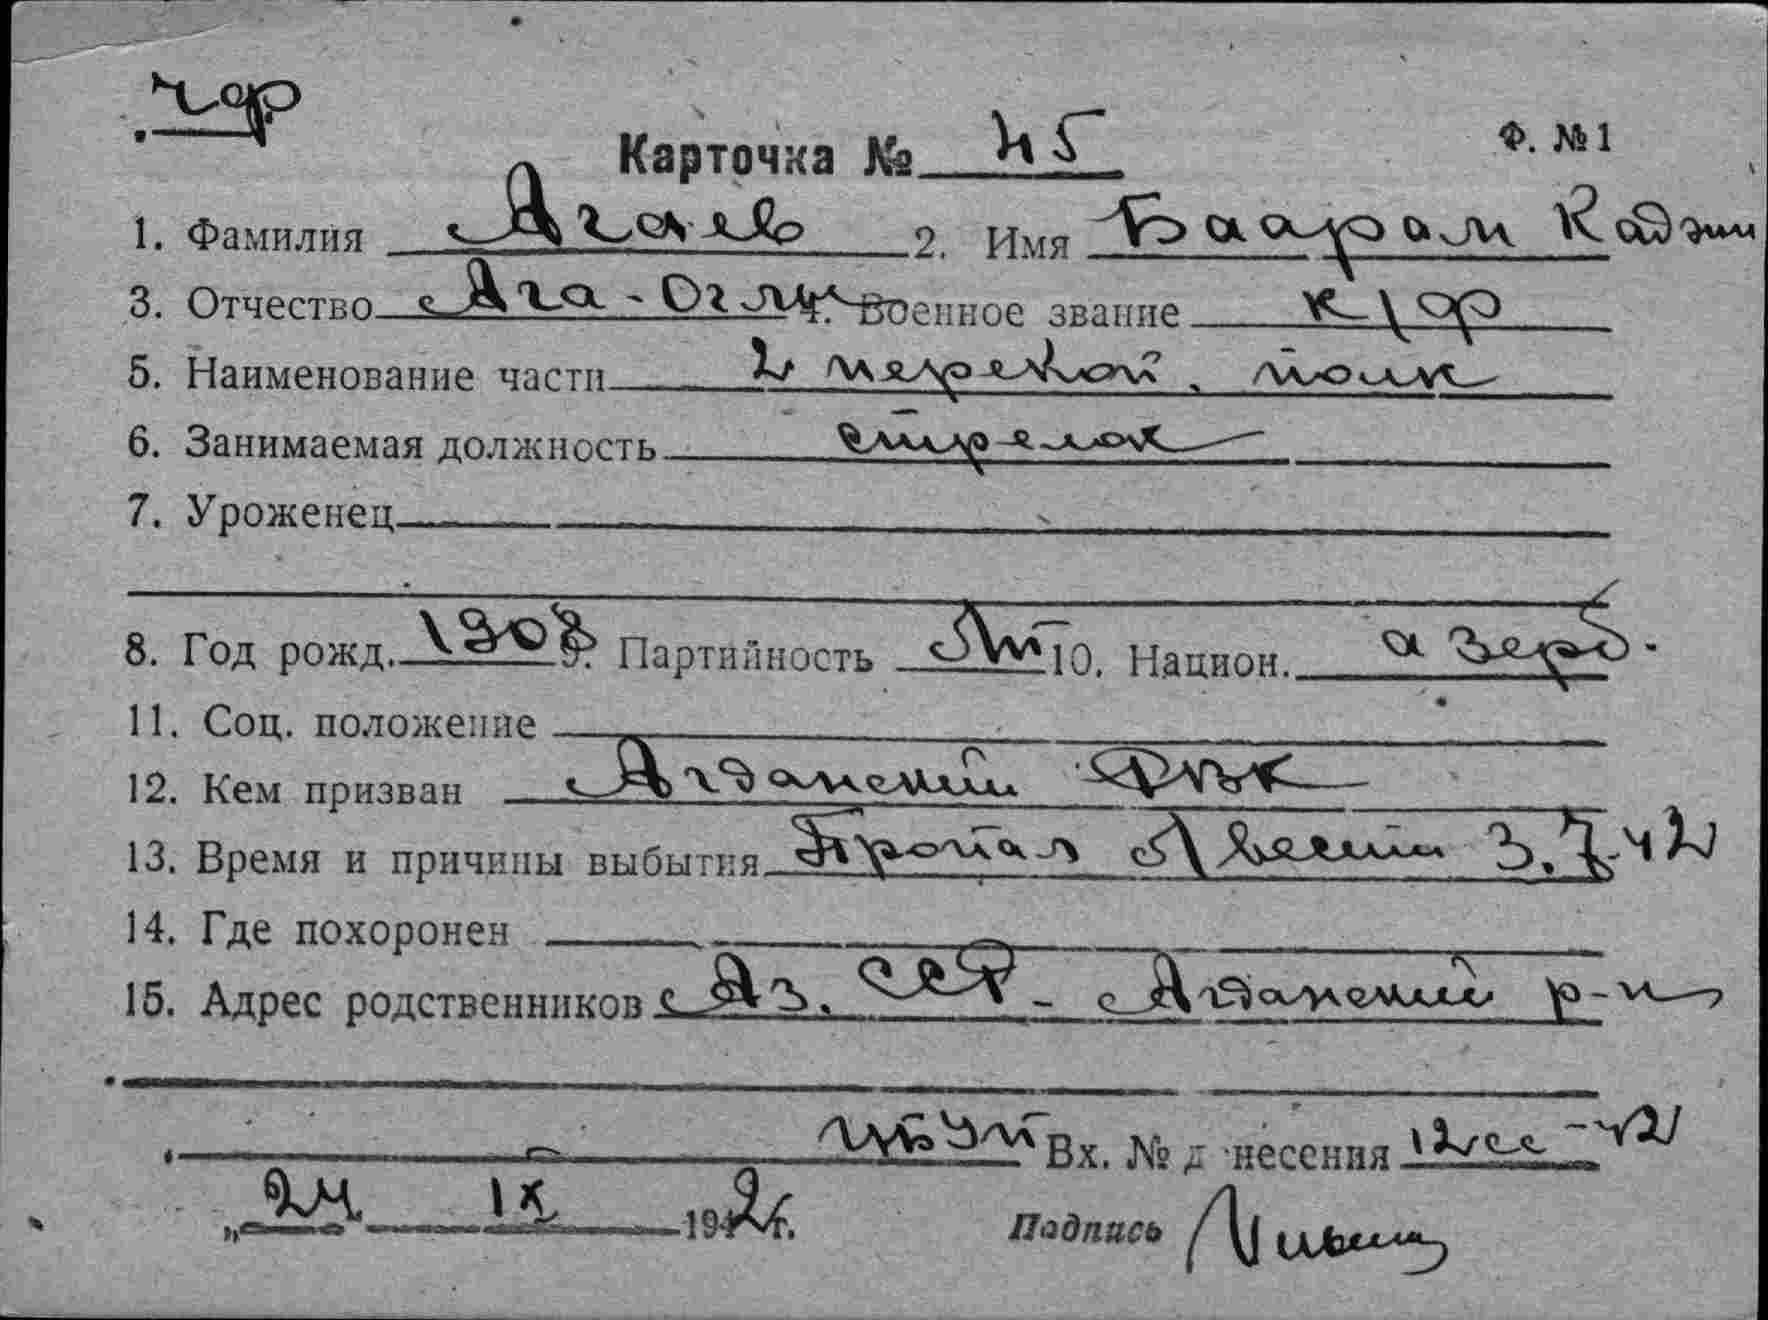 чф
Карточка № 45 Ф. №1
1. Фамилия Агаев 2. Имя Баарам Кадэш
3. Отчество Ага-Оглы 4. Военное звание к/ф
5. Наименование части 2 перекоп. полк
6. Занимаемая должность стрелок
7. Уроженец
8. Год рожд. 1908 9. Партийность 10. Национ. азерб.
11. Соц. положение
12. Кем призван Агдамский РВК
13. Время и причины выбытия Пропал 3.7.42
14. Где похоронен
15. Адрес родственников Аз. ССР - Агдамский р-н
Вх. № донесения 12сс-42
„24 IX 1942г. Подпись